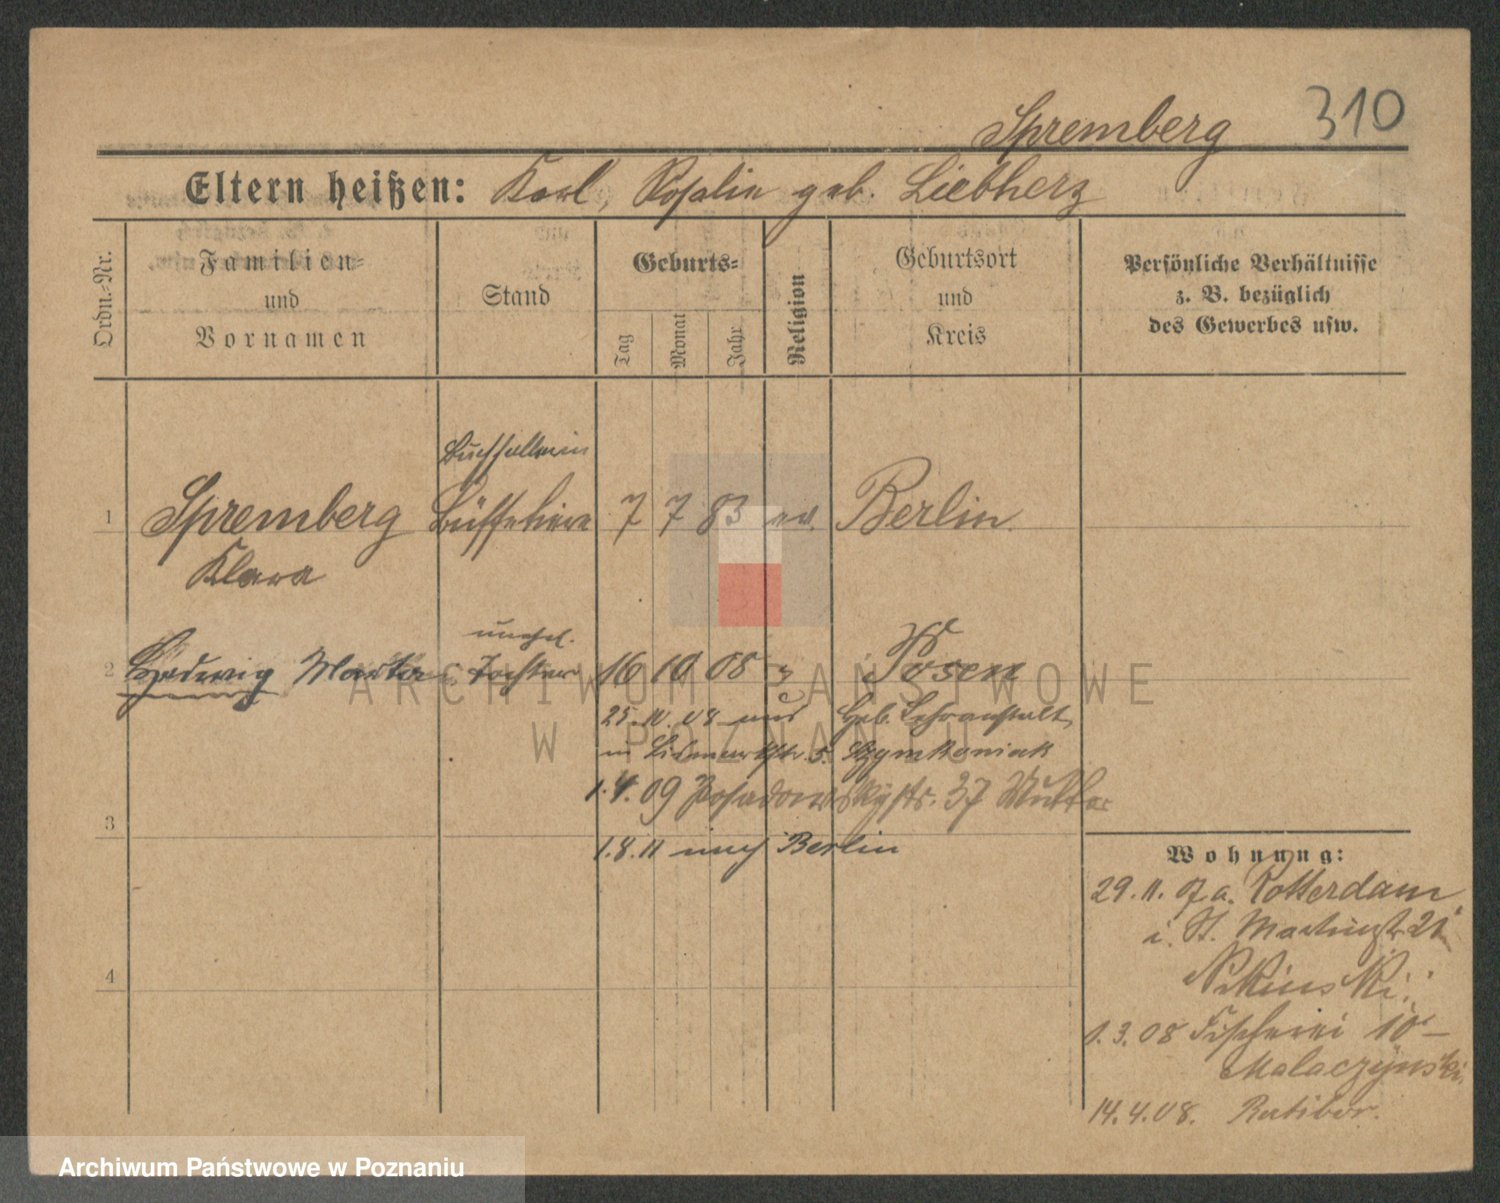 310
Spremberg
Eltern heißen: Karl, Rosalie geb. Liebherz
Ordn.-Nr.
Familien-
und
Vornamen
Stand
Geburts-
Tag
Monat
Jahr
Religion
Geburtsort
und
Kreis
Persönliche Verhältnisse
z. B. bezüglich
des Gewerbes usw.
Buchhalterin
1 Spremberg 7 7 83 ev. Berlin
Klara
unehel.
2 Hedwig Marta Tochter 16 10 08 Posen
25. 08 aus Geb. Lehranstalt
in Bismarckstr. 5. Szymkowiak
1.4.09 Posadowskystr. 37 Mutter
3
1.8.11 nach Berlin
4
Wohnung:
29.11.07 a. Rotterdam
i. St. Martinstr 21
1.3.08 Fischerei 10
Malaczynski.
14.4.08. Ratibor.
ARCHIWUM PAŃSTWOWE
W POZNANIU
Archiwum Państwowe w Poznaniu